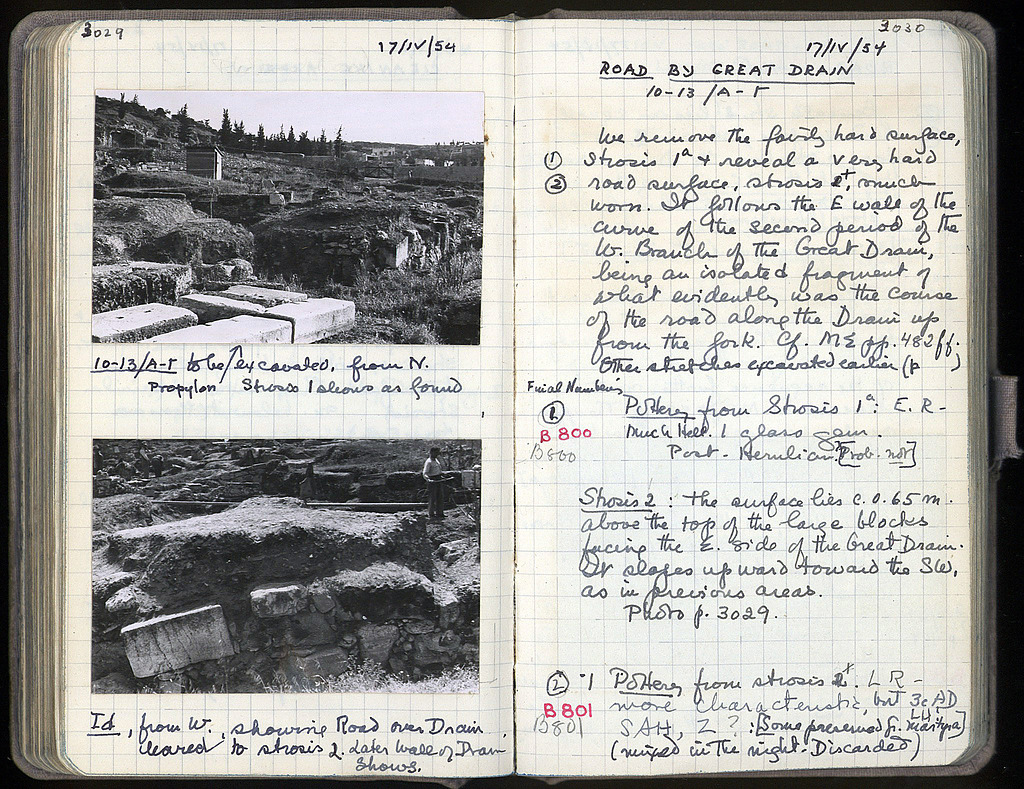 3029
17/IV/54
10-13/A-Γ to be excavated, from N.
Propylon Strosis 1 shows as found
Id, from W., showing Road over Drain
cleared to strosis 2. Later wall of Drain
shows.
3030
17/IV/54
ROAD BY GREAT DRAIN
10-13/A-Γ
We remove the fairly hard surface,
① Strosis 1ᵃ & reveal a very hard
② road surface, strosis 2, much
worn. It follows the E wall of the
curve of the second period of the
W. Branch of the Great Drain,
being an isolated fragment of
what evidently was the course
of the road along the Drain up
from the fork. Cf. ΜΣ pp. 482ff.
Other stretches excavated earlier (p )
Final Numbering
① Pottery from Strosis 1ᵃ: E.R-
B 800 Much Hell. 1 glass gem.
B800 Post-Herulian? [Prob. not]
Strosis 2: the surface lies c. 0.65 m.
above the top of the large blocks
facing the E. side of the Great Drain.
It slopes upward toward the SW,
as in previous areas.
Photo p. 3029.
② Pottery from strosis LR-
B 801 more characteristic, but 3c AD
B801 SAH, Z?: [Some preserved fr. martyra]
(mixed in the night. Discarded)